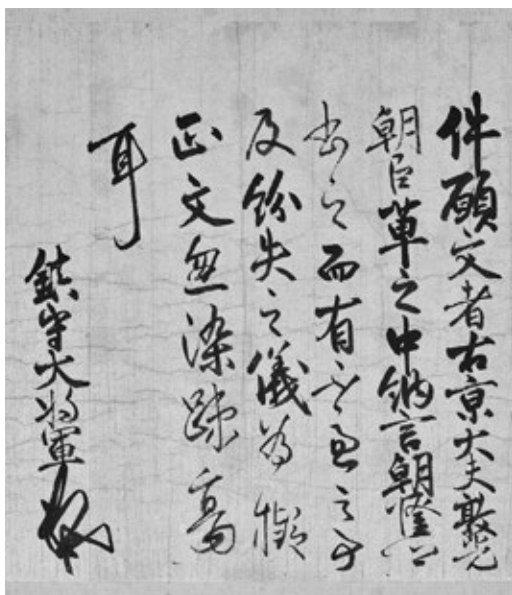 件願文者右京大夫敦光
朝臣草之中納言朝隆卿
書之而有不慮之事
及紛失之儀為擬
正文忽染疎毫
耳
鎮守大将軍